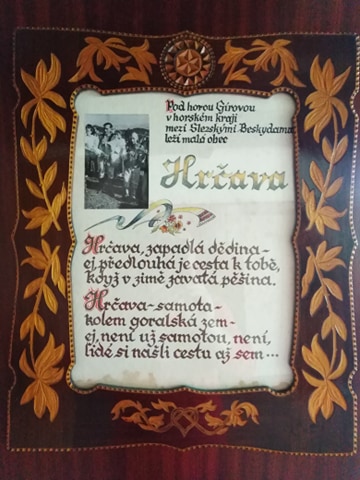 Pod horou Girovou
v horském kraji
mezi Slezskými Beskydama
leží malá obec
Hrčava
Hrčava, zapadlá dědina -
ej, předlouhá je cesta k tobě,
když v zimě zavátá pěšina.
Hrčava - samota -
kolem goralská zem -
ej, není už samotou, není,
lidé si našli cestu až sem...